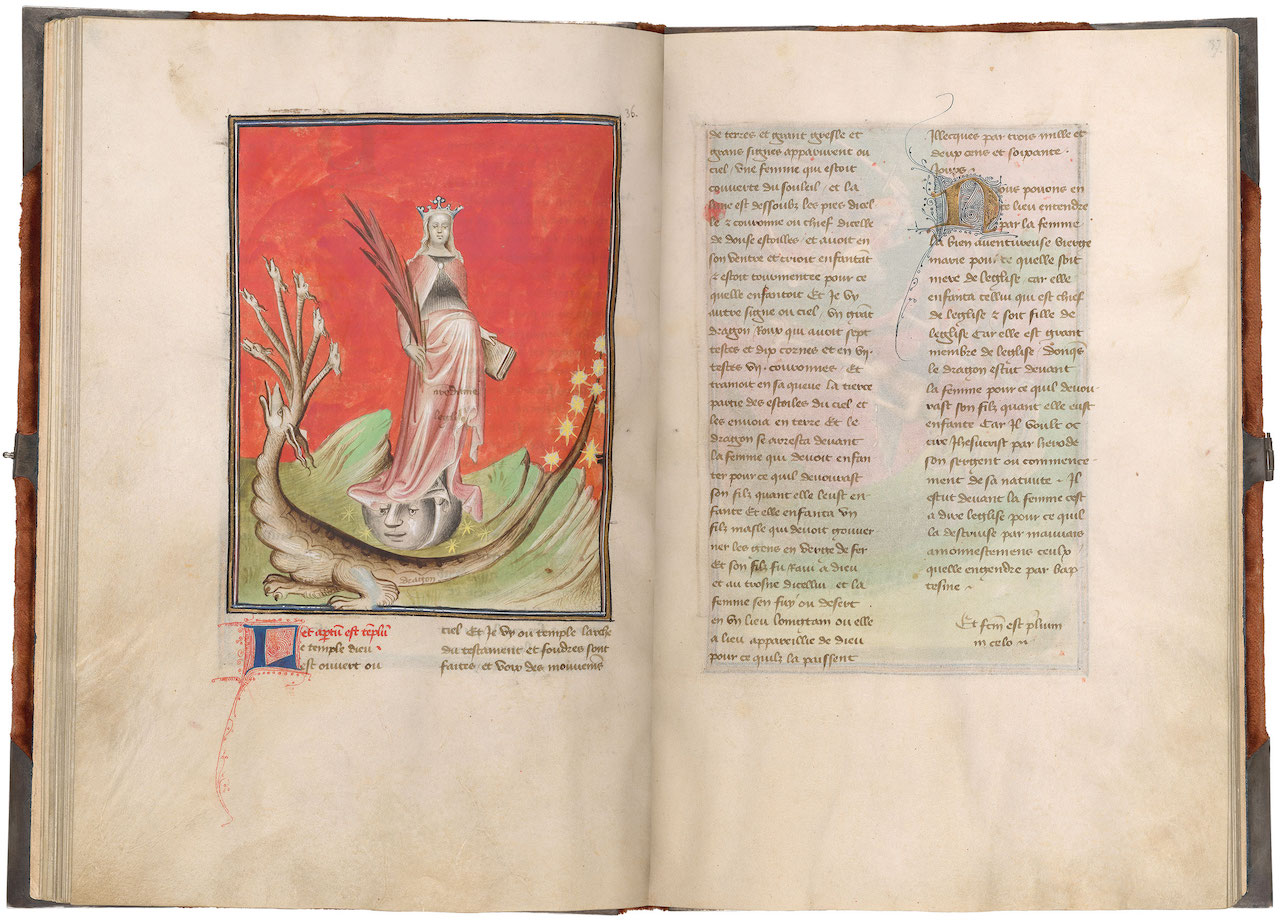 36.
dragon
et aptum est templu
Le temple dieu
est ouvert ou
ciel Et Je vy ou temple larche
du testament et foudres sont
faites et voix des mouvemens
37.
de terres et grant gresle et
grans signes apparurent ou
ciel / Une femme qui estoit
couverte du souleil / et la
lune est dessoubz les pies dicel
le & couronne ou chief dicelle
de douse estoilles / et avoit en
son ventre et crioit enfantãt
& estoit tourmentee pour ce
quelle enfantoit Et Je vy
autre signe ou ciel / Un grãt
dragon Roux qui avoit sept
testes et dix cornes et en vij.
testes vij. couronnes / Et
trainoit en sa queue la tierce
partie des estoiles du ciel et
les envoia en terre Et le
dragon se arresta devant
la femme qui devoit enfan
ter pour ce quil devourast
son filz quant elle leust en-
fante Et elle enfanta Un
filz masle qui devoit gouver
ner les gens en verge de fer
Et son filz fu Ravi a dieu
et au trosne dicellui / et la
femme sen fuy ou desert
en Un lieu lomgtam ou elle
a lieu appareillie de dieu
pour ce quilz la paissent
Illecques par trois mille et
deux cens et soixante
Jours
Nous povons en
ce lieu entendre
par la femme
la bien aventureuse vierge
marie pour ce quelle soit
mere de leglise / car elle
enfanta cellui qui est chief
de leglise & soit fille de
leglise Car elle est grant
membre de leglise / Donqs
le dragon estut devant
la femme pour ce quil devou
rast son filz quant elle eust
enfante Car Il voult oc
cire Jhesucrist par herode
son sergent ou commence-
ment de sa nativite / Il
estut devant la femme cest
a dire leglise pour ce quil
la destruise par mauvais
amonnestemens ceulx
quelle engendre par bap
tesme
Et fcm est plium
in celo